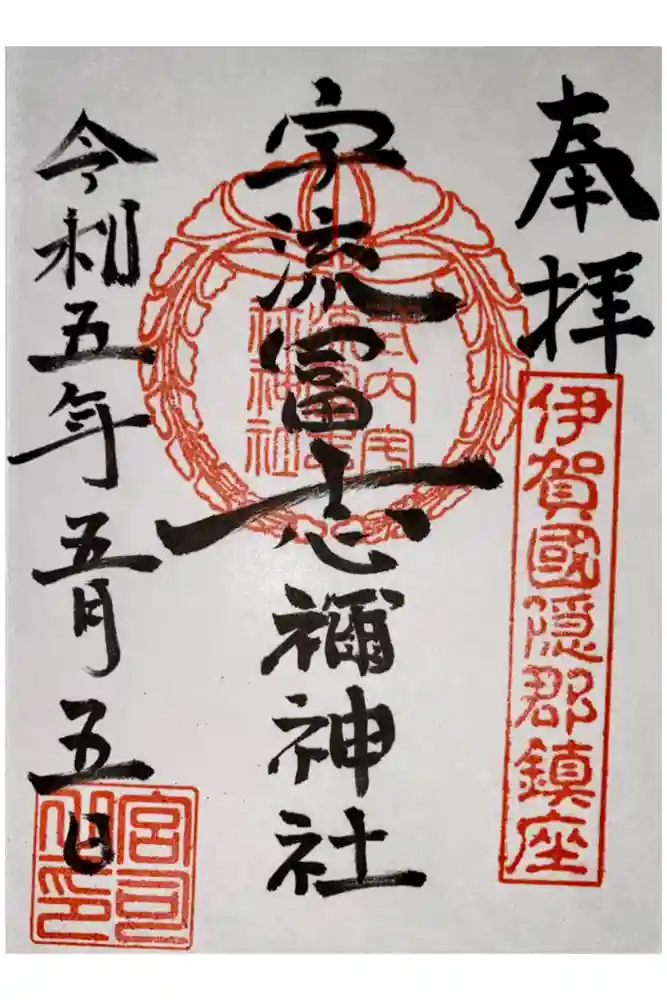 奉拝
伊賀國隠郡鎮座
宇流冨志禰神社
式内宇
神社
令和五年五月五日
宮司
之印